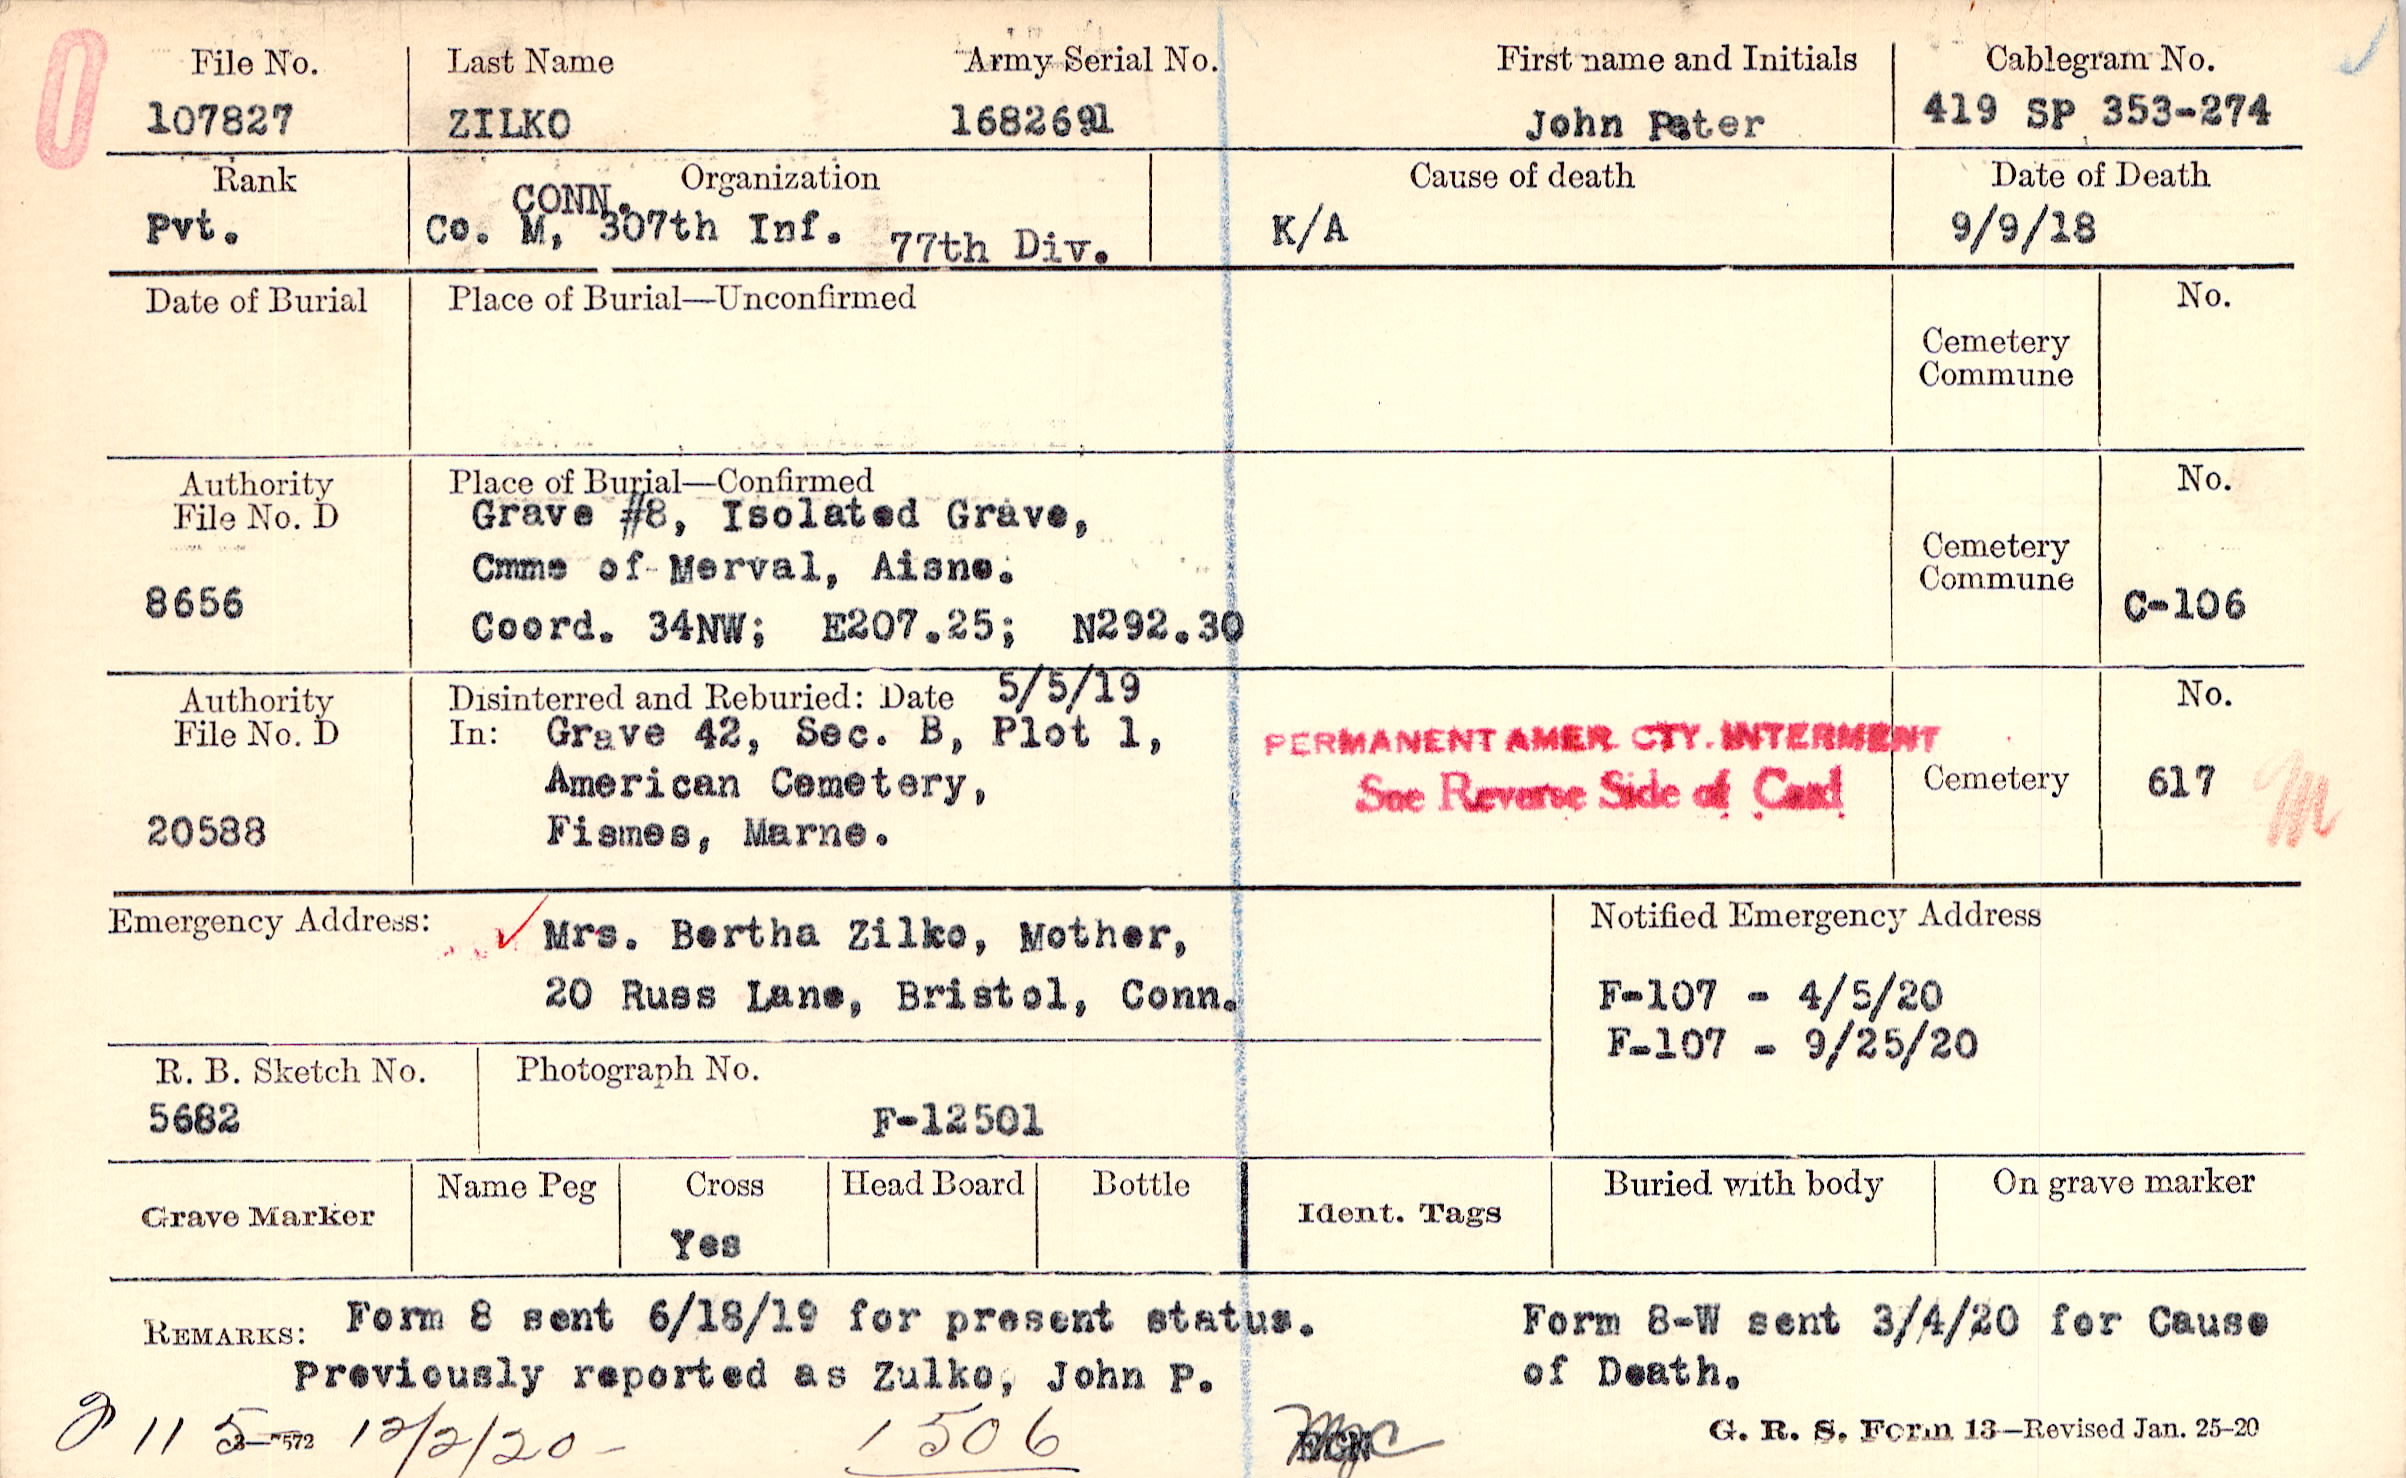 File No. Last Name Army Serial No. First name and Initials Cablegram No.
107827 ZILKO 1682691 John Peter 419 SP 353-274
Rank Organization Cause of death Date of Death
CONN.
Pvt. Co. M, 307th Inf. 77th Div. K/A 9/9/18
Date of Burial Place of Burial—Unconfirmed No.
Cemetery
Commune
Authority Place of Burial—Confirmed No.
File No. D Grave #8, Isolated Grave,
Cmme of Merval, Aisne. Cemetery
8656 Coord. 34NW; E207.25; N292.30 Commune C-106
Authority Disinterred and Reburied: Date 5/5/19 No.
File No. D In: Grave 42, Sec. B, Plot 1, PERMANENT AMER. CTY. INTERMENT
American Cemetery, See Reverse Side of Card Cemetery 617 M
20588 Fismes, Marne.
Emergency Address: Mrs. Bertha Zilko, Mother, Notified Emergency Address
20 Russ Lane, Bristol, Conn. F-107 - 4/5/20
F-107 - 9/25/20
R. B. Sketch No. Photograph No.
5682 F-12501
Grave Marker Name Peg Cross Head Board Bottle Ident. Tags Buried with body On grave marker
Yes
REMARKS: Form 8 sent 6/18/19 for present status. Form 8-W sent 3/4/20 for Cause
Previously reported as Zulko, John P. of Death.
115 12/2/20- 1506
3—7572 G. R. S. Form 13—Revised Jan. 25-20